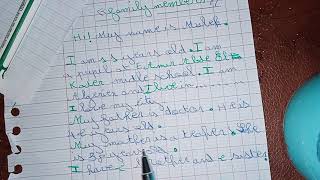 family members
Hi! My name is Malek.
I am s s years old. I am
a pupil at Omar Ibe El
Kater midle school. I am
Algerien and I live in......
I love my city
My father is doctor. He is
years old.
My mother is a teafher. She
is 37 years
I have brother and sister